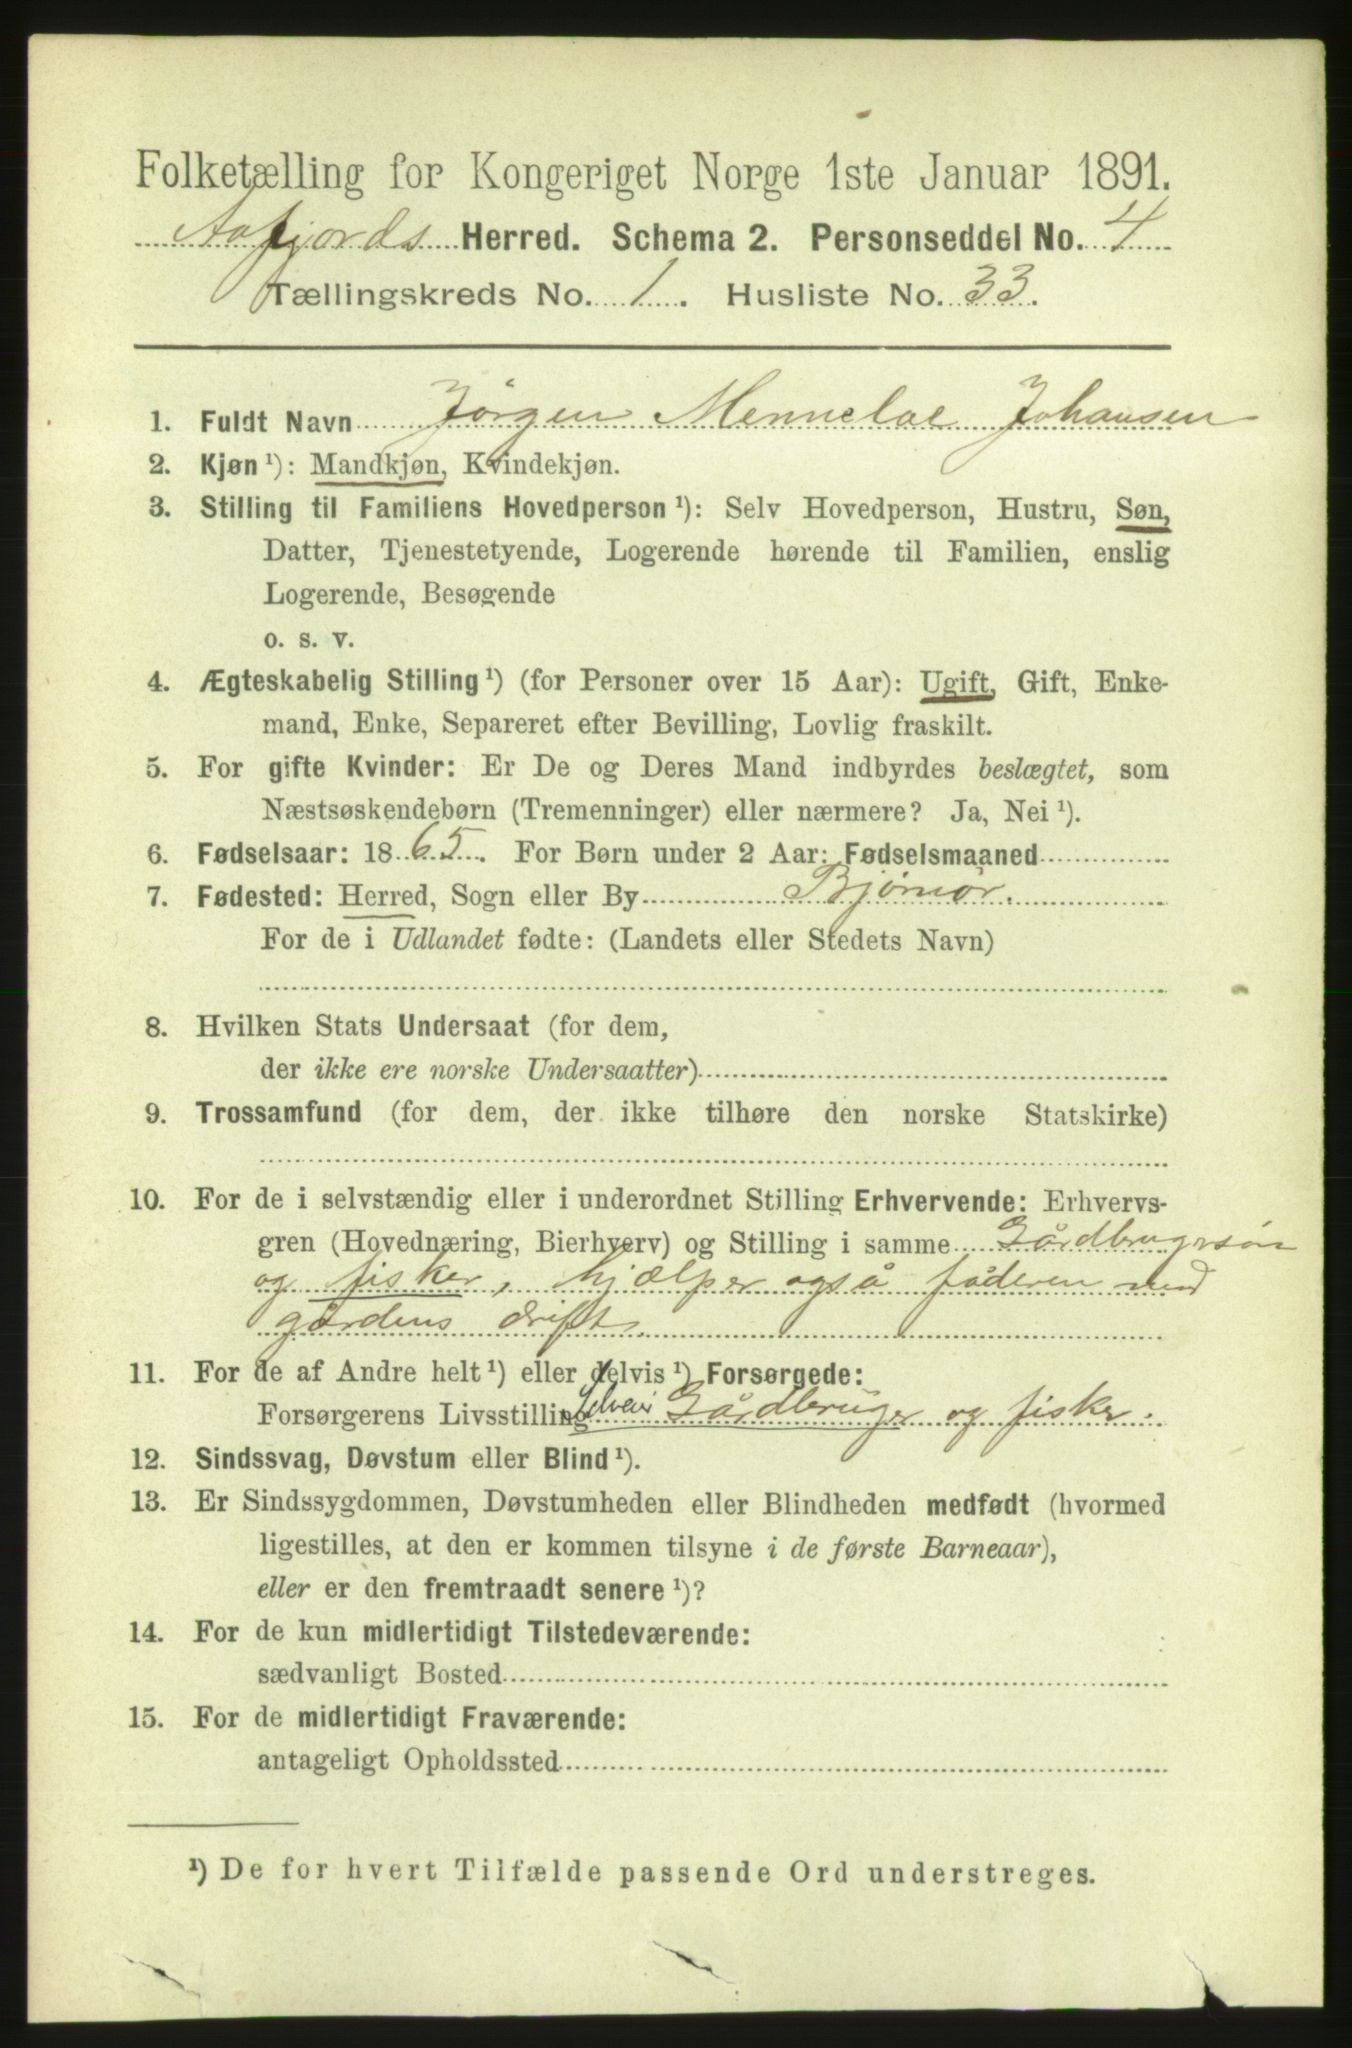 Folketælling for Kongeriget Norge 1ste Januar 1891.
Aafjords Herred. Schema 2. Personseddel No. 4
Tællingskreds No. 1. Husliste No. 33.
1. Fuldt Navn Jörgen Mennelae Johansen
2. Kjøn ¹): Mandkjøn, Kvindekjøn.
3. Stilling til Familiens Hovedperson ¹): Selv Hovedperson, Hustru, Søn,
Datter, Tjenestetyende, Logerende hørende til Familien, enslig
Logerende, Besøgende
o. s. v.
4. Ægteskabelig Stilling ¹) (for Personer over 15 Aar): Ugift, Gift, Enke-
mand, Enke, Separeret efter Bevilling, Lovlig fraskilt.
5. For gifte Kvinder: Er De og Deres Mand indbyrdes beslægtet, som
Næstsøskendebørn (Tremenninger) eller nærmere? Ja, Nei ¹).
6. Fødselsaar: 1865. For Børn under 2 Aar: Fødselsmaaned
7. Fødested: Herred, Sogn eller By Bjørnør.
For de i Udlandet fødte: (Landets eller Stedets Navn)
8. Hvilken Stats Undersaat (for dem,
der ikke ere norske Undersaatter)
9. Trossamfund (for dem, der ikke tilhøre den norske Statskirke)
10. For de i selvstændig eller i underordnet Stilling Erhvervende: Erhvervs-
gren (Hovednæring, Bierhverv) og Stilling i samme Gårdbrugersön
og fisker, hjælper også faderen med
gårdens drift.
11. For de af Andre helt ¹) eller delvis ¹) Forsørgede:
Forsørgerens Livsstilling Selveier Gårdbruger og fisker.
12. Sindssvag, Døvstum eller Blind ¹).
13. Er Sindssygdommen, Døvstumheden eller Blindheden medfødt (hvormed
ligestilles, at den er kommen tilsyne i de første Barneaar),
eller er den fremtraadt senere ¹)?
14. For de kun midlertidigt Tilstedeværende:
sædvanligt Bosted
15. For de midlertidigt Fraværende:
antageligt Opholdssted
¹) De for hvert Tilfælde passende Ord understreges.